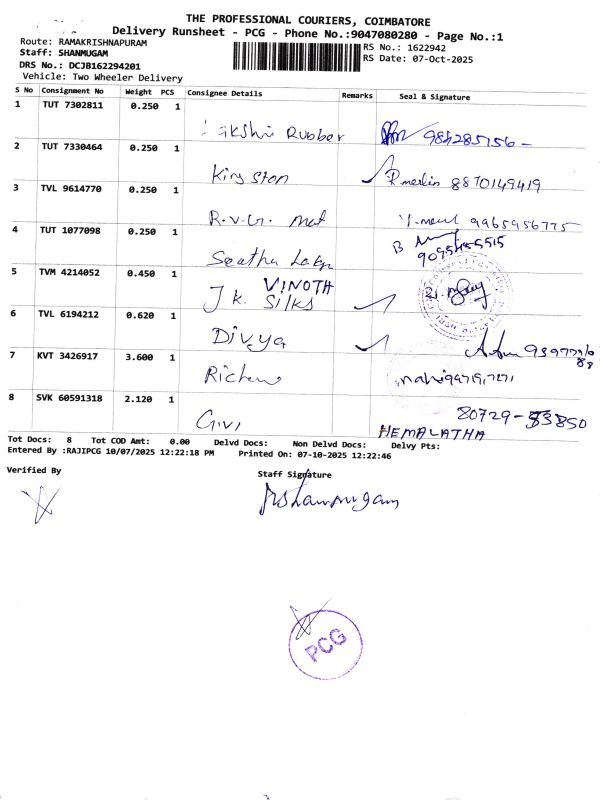 THE PROFESSIONAL COURIERS, COIMBATORE
Delivery Runsheet - PCG - Phone No.:9047080280 - Page No.:1
Route: RAMAKRISHNAPURAM
RS No.: 1622942
Staff: SHANMUGAM
RS Date: 07-Oct-2025
DRS No.: DCJB162294201
Vehicle: Two Wheeler Delivery
S No Consignment No Weight PCS Consignee Details Remarks Seal & Signature
1 TUT 7302811 0.250 1
Rubber
2 TUT 7330464 0.250 1
Kingston P. merlin 8870149419
3 TVL 9614770 0.250 1
R.v.G. 9965956775
4 TUT 1077098 0.250 1
Seetha B
5 TVM 4214052 0.450 1
VINOTH
J k. Silks
6 TVL 6194212 0.620 1
Divya
7 KVT 3426917 3.600 1
8 SVK 60591318 2.120 1
80729-53850
HEMALATHA
Tot Docs: 8 Tot COD Amt: 0.00 Delvd Docs: Non Delvd Docs: Delvy Pts:
Entered By :RAJIPCG 10/07/2025 12:22:18 PM Printed On: 07-10-2025 12:22:46
Verified By
Staff Signature
PCG